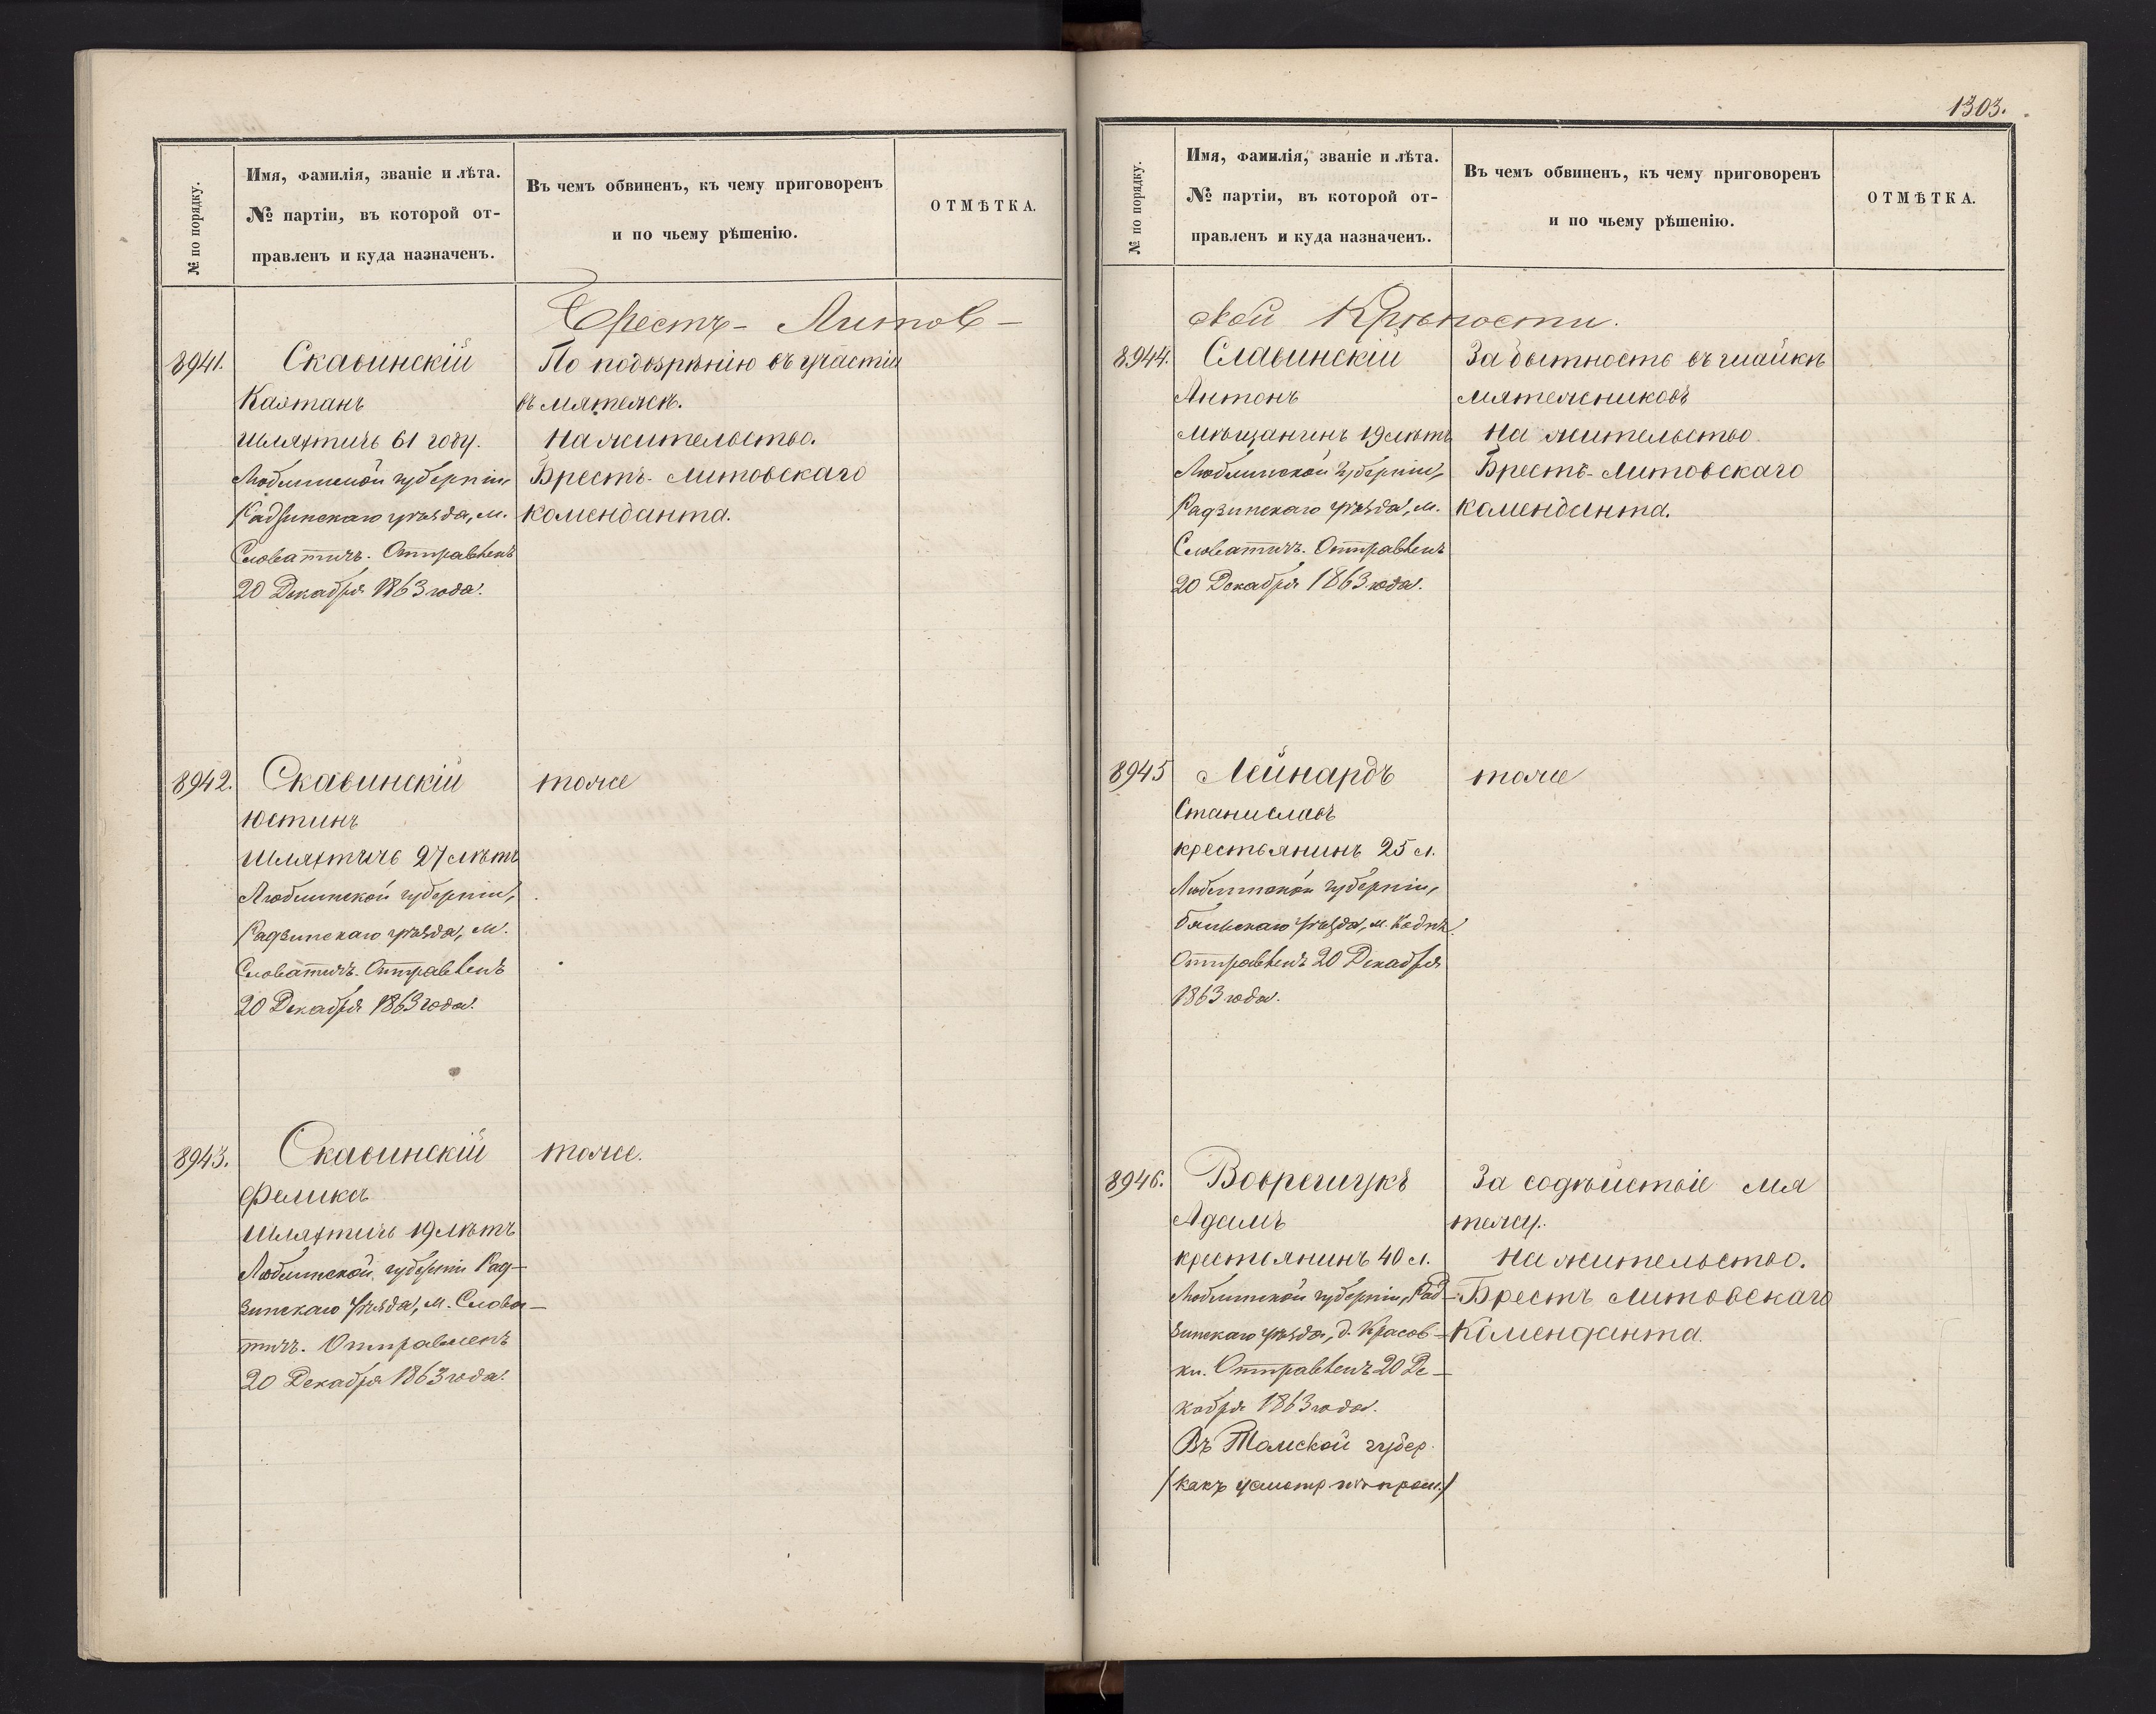 1303.
№ по порядку.
Имя, фамилія, званіе и лѣта.
№ партіи, въ которой от-
правленъ и куда назначенъ.
Въ чемъ обвиненъ, къ чему приговоренъ
и по чьему рѣшенію.
ОТМѢТКА.
Брестъ- Литов-
8941.
Скавинскій
Каэтанъ
шляхтичъ 61 году.
Люблинской губерніи,
Радзинскаго уѣзда, м.
Словатичъ. Отправленъ
20 Декабря 1863 года.
По подозрѣнію въ участіи
въ мятежѣ.
На жительство.
Брестъ-Литовскаго
коменданта.
8942.
Скавинскій
Юстинъ
шляхтичъ 27 лѣтъ
Люблинской губерніи,
Радзинскаго уѣзда, м.
Словатичъ. Отправленъ
20 Декабря 1863 года.
тоже
8943.
Скавинскій
Феликсъ
шляхтичъ 19 лѣтъ
Люблинской губерніи Рад-
зинскаго уѣзда, м. Слова-
тичъ. Отправленъ
20 Декабря 1863 года.
тоже.
№ по порядку.
Имя, фамилія, званіе и лѣта.
№ партіи, въ которой от-
правленъ и куда назначенъ.
Въ чемъ обвиненъ, къ чему приговоренъ
и по чьему рѣшенію.
ОТМѢТКА.
ской Крѣпости.
8944.
Славинскій
Антонъ
мѣщанинъ 19 лѣтъ
Люблинской губерніи,
Радзинскаго уѣзда, м.
Словатичъ. Отправленъ
20 Декабря 1863 года.
За бытность въ шайкѣ
мятежниковъ
На жительство.
Брестъ-Литовскаго
коменданта.
8945
Лейнардъ
Станиславъ
крестьянинъ 25 л.
Люблинской губерніи,
Бяльскаго уѣзда, м. Кодня.
Отправленъ 20 Декабря
1863 года.
тоже
8946.
Адамъ
крестьянинъ 40 л.
Люблинской губерніи, Рад-
зинскаго уѣзда, д. Красов-
ки. Отправленъ 20 Де-
кабря 1863 года.
Въ Томской губер.
/какъ усмотр.
За содѣйствіе мя
тежу.
На жительство.
Брестъ Литовскаго
Коменданта.